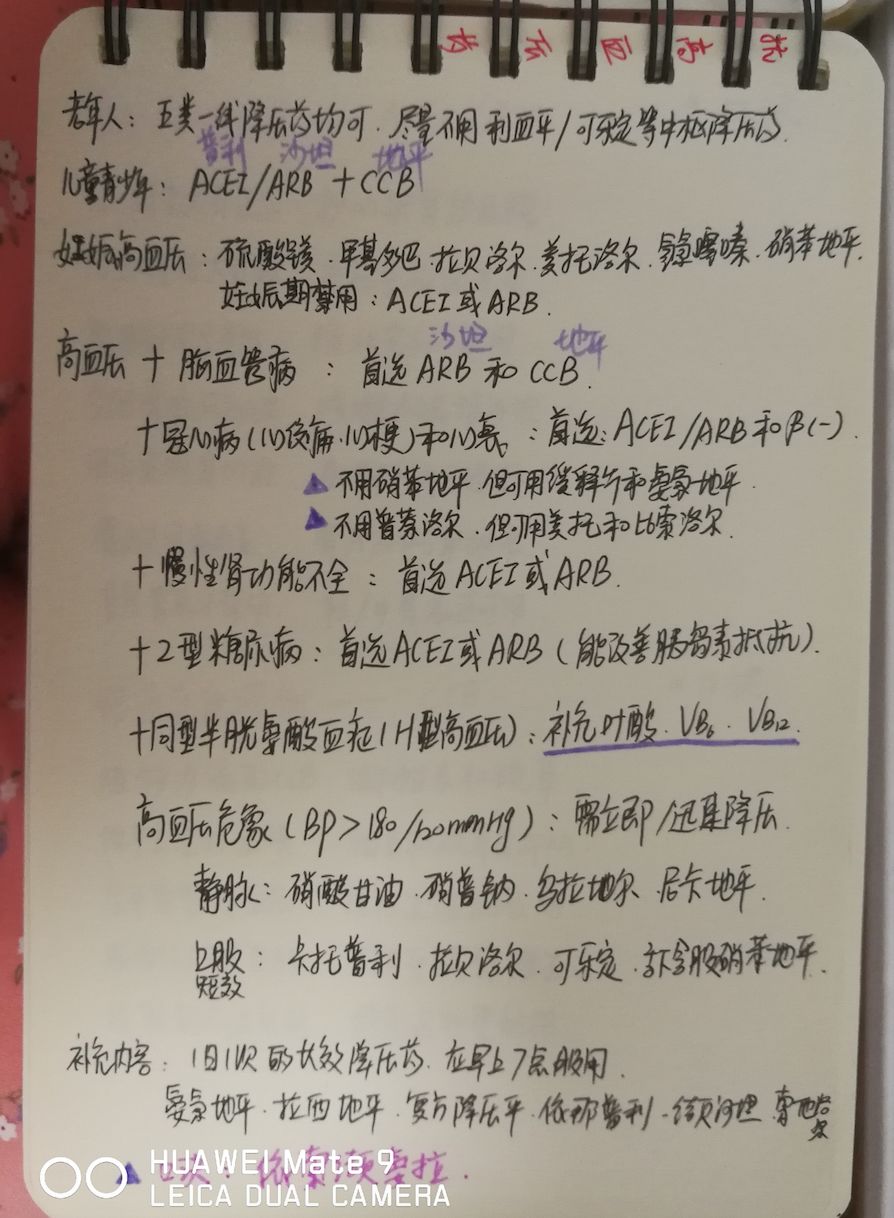 抗高血压药
老年人：五类一线降压药均可．尽量不用利血平/可乐定等中枢降压药．
普利 沙坦 地平
儿童青少年：ACEI/ARB + CCB
妊娠高血压：硫酸镁．甲基多巴．拉贝洛尔．美托洛尔．氢氯噻嗪．硝苯地平．
妊娠期禁用：ACEI或ARB．
沙坦 地平
高血压 + 脑血管病 ：首选 ARB 和 CCB．
+ 冠心病（心绞痛．心梗）和心衰：首选：ACEI/ARB和β(-)．
▲ 不用硝苯地平．但可用缓释片和氨氯地平．
▲ 不用普萘洛尔．但可用美托和比索洛尔．
+ 慢性肾功能不全：首选ACEI或ARB．
+ 2型糖尿病：首选ACEI或ARB（能改善胰岛素抵抗）．
+ 同型半胱氨酸血症（H型高血压）：补充叶酸．VB6．VB12．
高血压危象（BP>180/120mmHg）：需立即/迅速降压．
静脉：硝酸甘油．硝普钠．乌拉地尔．尼卡地平．
口服：卡托普利．拉贝洛尔．可乐定．舌下含服硝苯地平．
短效
补充内容：1日1次的长效降压药．在早上7点服用．
氨氯地平．拉西地平．复方降压平．依那普利．缬沙坦．索他洛尔
▲
HUAWEI Mate 9
LEICA DUAL CAMERA